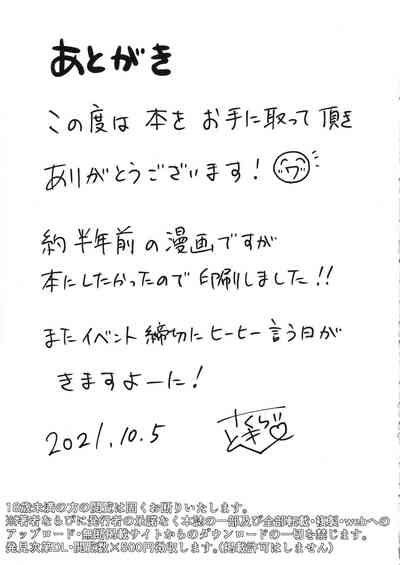 あとがき
この度は 本を お手に取って 頂き
ありがとうございます!
約半年前の漫画ですが
本にしたかったので印刷しました!!
またイベント締切にヒーヒー言う日が
きますよーに!
2021.10.5
18歳未満の方の閲覧は固くお断りいたします。
※著者ならびに発行者の承諾なく本誌の一部及び全部転載・複製・webへの
アップロード・無断掲載サイトからのダウンロードの一切を禁じます。
発見次第DL・閲覧数×500円徴収します。(掲載許可はしません)